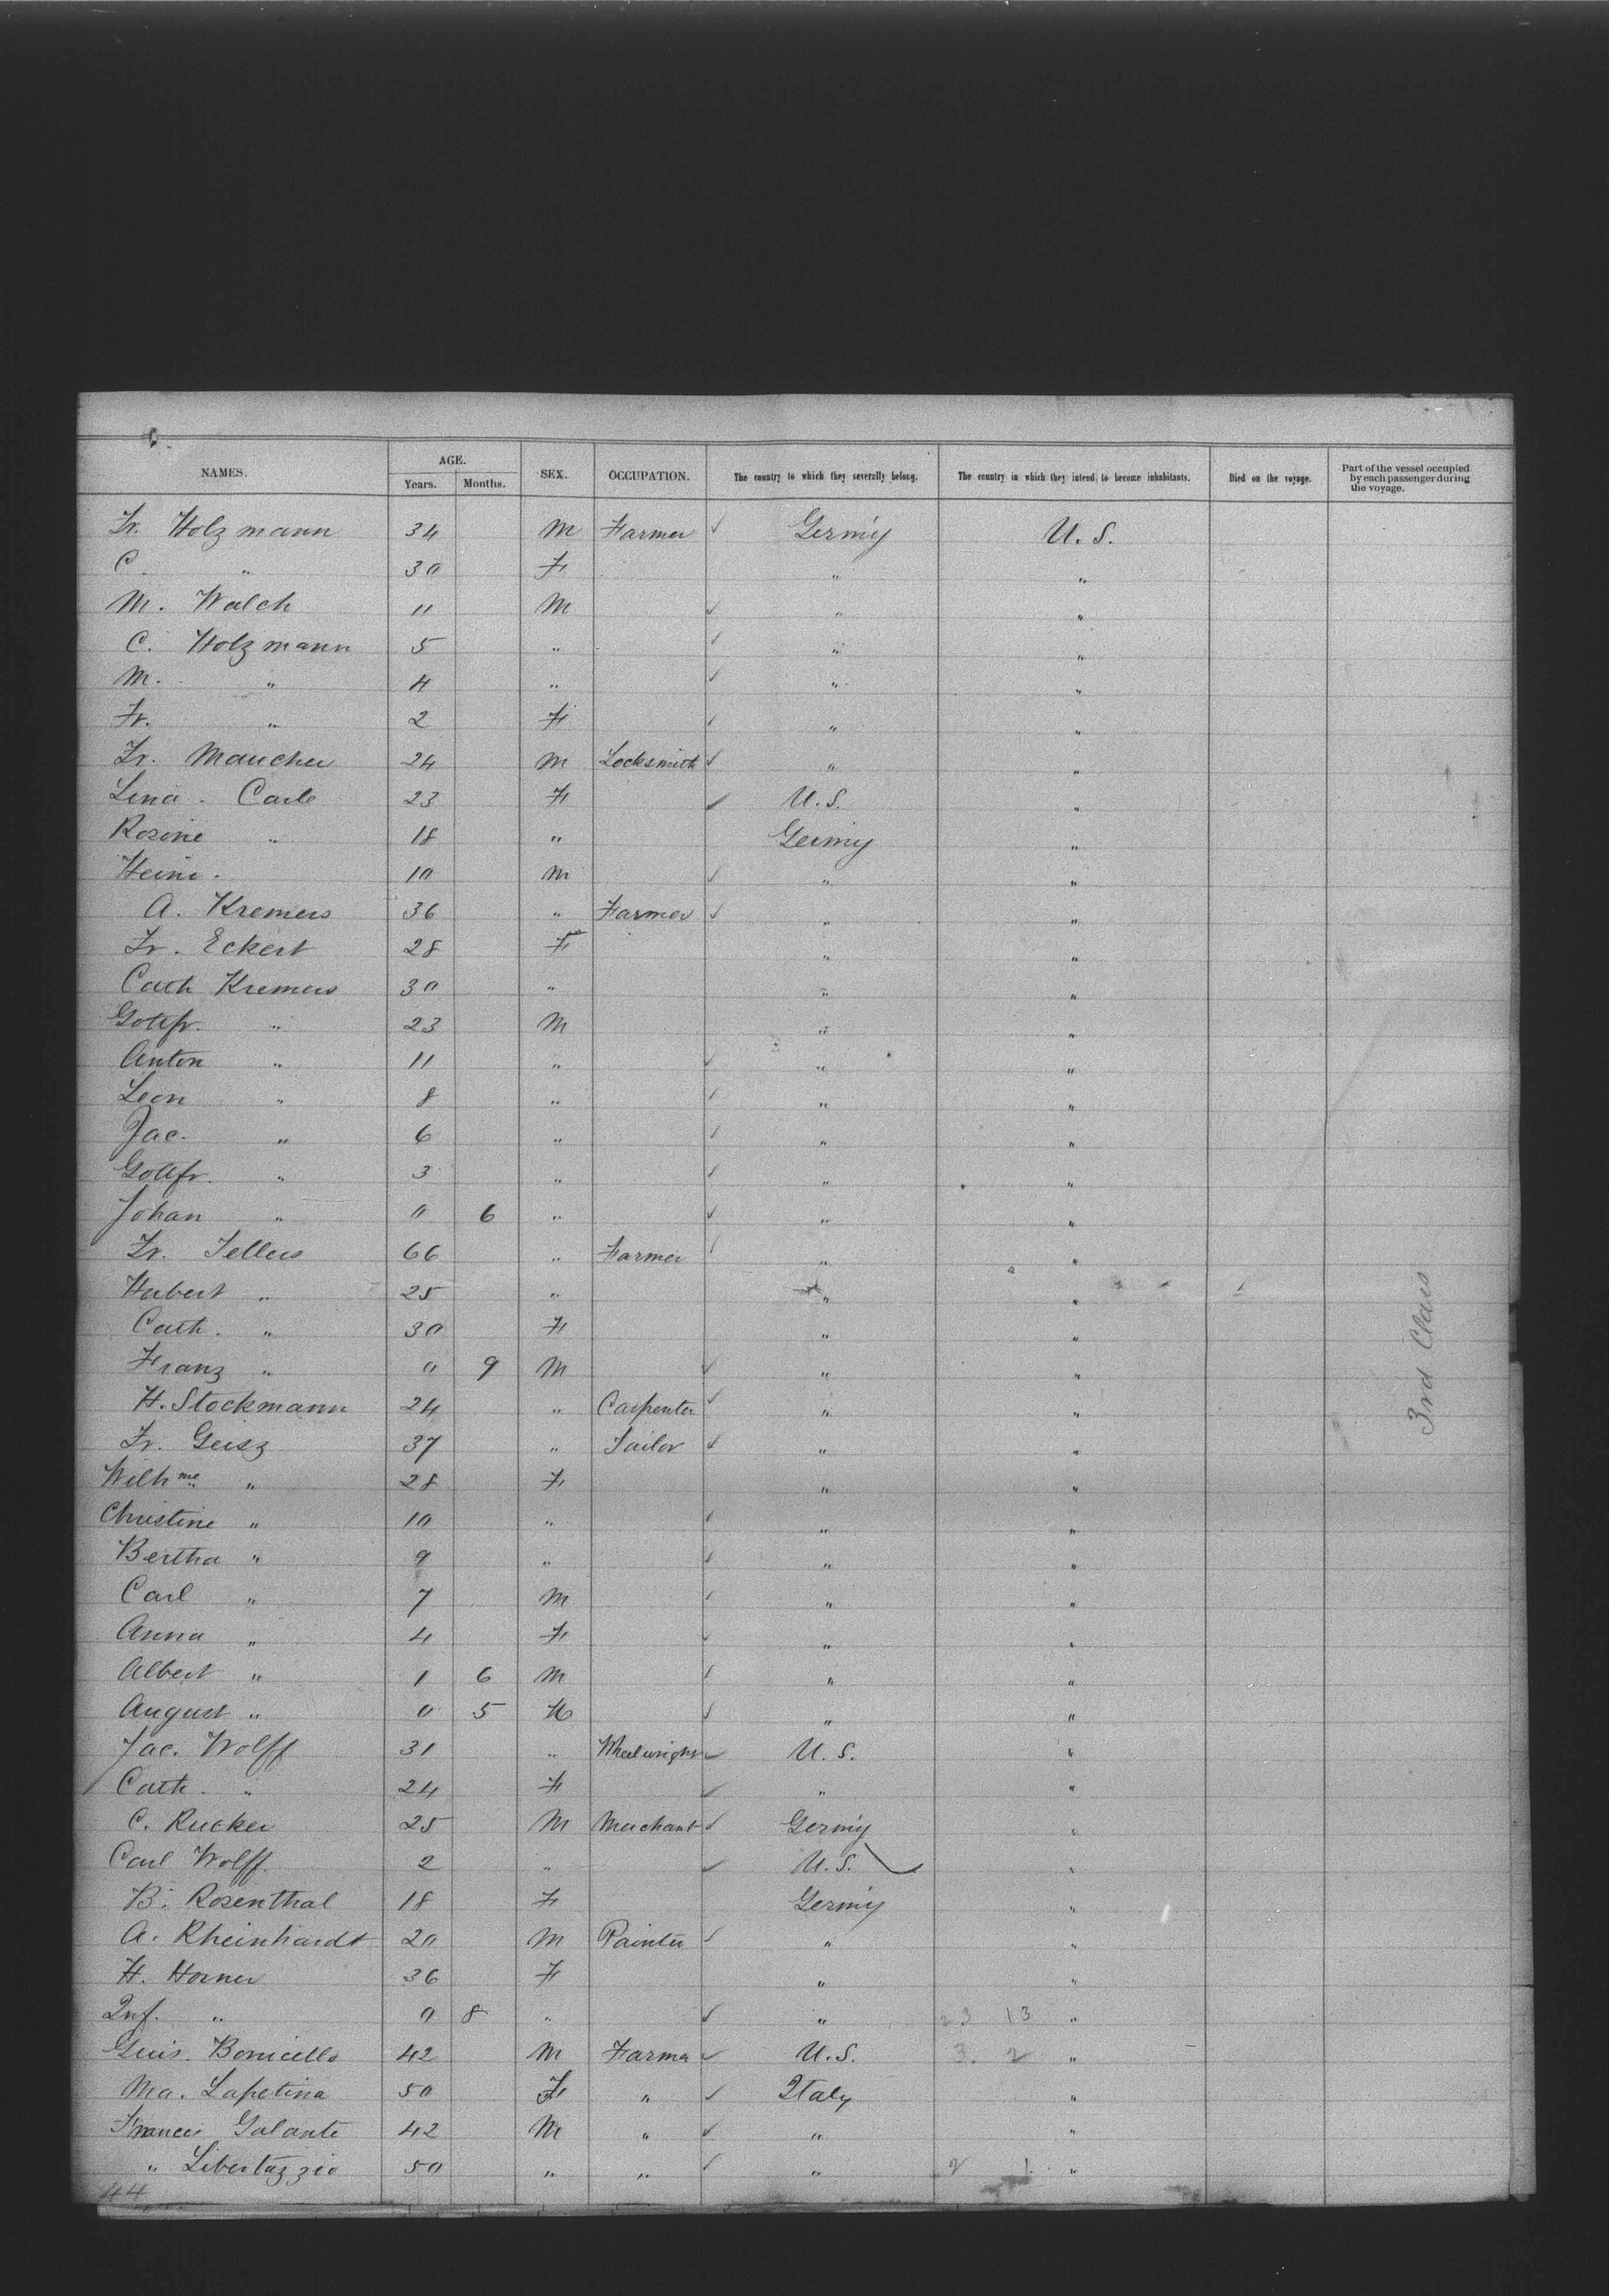 NAMES. AGE. SEX. OCCUPATION. The country to which they severally belong. The country in which they intend to become inhabitants. Died on the voyage. Part of the vessel occupied by each passenger during the voyage.
Years. Months.
Fr. Holzmann 34 M Farmer Germ'y U. S.
C. " 30 F " "
M. Walch 11 M " "
C. Holzmann 5 " " "
M. " 4 " " "
Fr. " 2 F " "
Fr. Maucher 24 M Locksmith " "
Lina Carle 23 F U. S. "
Rosine " 18 " Germ'y "
Heinr. 10 M " "
A. Kremers 36 " Farmer " "
Fr. Eckert 28 F " "
Cath Kremers 30 " " "
Gottfr. " 23 M " "
Anton " 11 " " "
Leon " 8 " " "
Jac. " 6 " " "
Gottfr. " 3 " " "
Johan " 0 6 " " "
Fr. Tellers 66 " Farmer " "
Hubert " 25 " " "
Cath. " 30 F " "
Franz " 0 9 M " "
H. Stockmann 24 " Carpenter " "
Fr. Geisz 37 " Tailor " "
Wilhme " 28 F " "
Christine " 10 " " "
Bertha " 9 " " "
Carl " 7 M " "
Anna " 4 F " "
Albert " 1 6 M " "
August " 0 5 M " "
Jac. Wolff 31 " Wheelwright U. S. "
Cath. " 24 F " "
C. Rucker 25 M Merchant Germ'y "
Carl Wolff. 2 " U. S. "
B. Rosenthal 18 F Germ'y "
A. Rheinhardt 20 M Painter " "
H. Horner 36 F " "
Inf. " 0 8 " " 23 13 "
Guis. Bonicello 42 M Farmer U. S. 3. 2 "
Ma. Lapetina 50 F " Italy "
Frances Galante 42 M " " "
" Libertazzio 50 " " " 2 1 "
44
3rd Class